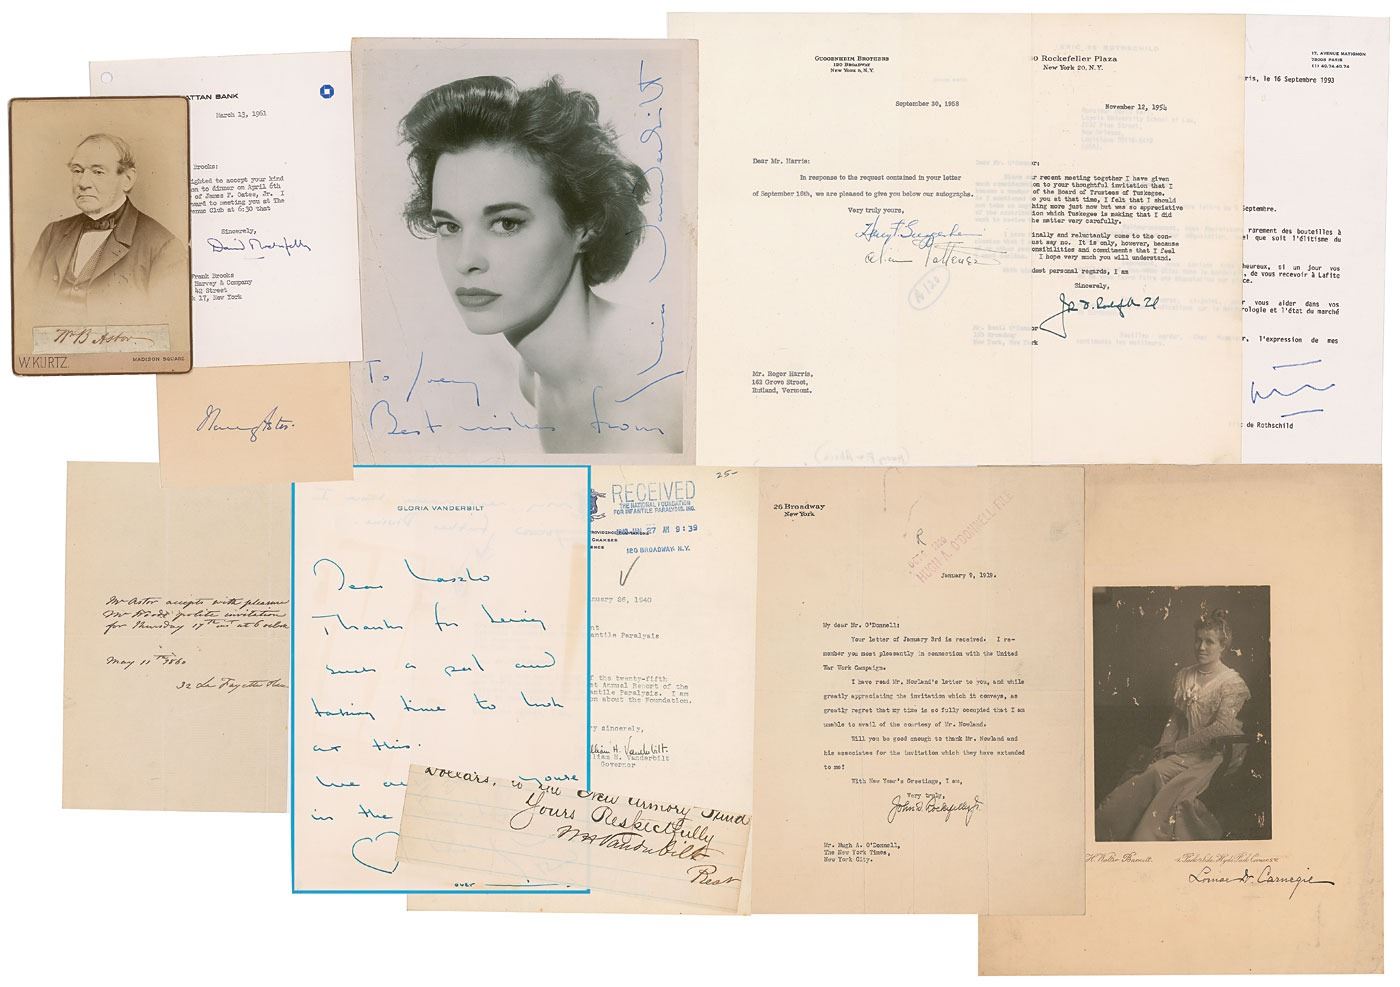 Wm B Astor
W. KURTZ.
MADISON SQUARE
ATTAN BANK
March 13, 1961
Brooks:
ighted to accept your kind
on to dinner on April 6th
of James F. Oates, Jr. I
ward to meeting you at The
enue Club at 6:30 that
Sincerely,
David Rockefeller
Frank Brooks
Harvey & Company
42 Street
k 17, New York
To Joey
Best wishes from
Gloria Vanderbilt
GUGGENHEIM BROTHERS
120 BROADWAY
NEW YORK 5, N.Y.
September 30, 1958
Dear Mr. Harris:
In response to the request contained in your letter
of September 18th, we are pleased to give you below our autographs.
Very truly yours,
Harry F. Guggenheim
Mr. Roger Harris,
162 Grove Street,
Rutland, Vermont.
30 Rockefeller Plaza
New York 20, N.Y.
November 12, 1954
r recent meeting together I have given
on to your thoughtful invitation that I
of the Board of Trustees of Tuskegee.
you at that time, I felt that I should
hing more just now but was so appreciative
ion which Tuskegee is making that I did
he matter very carefully.
inally and reluctantly come to the con-
ust say no. It is only, however, because
onsibilities and commitments that I feel
I hope very much you will understand.
dest personal regards, I am
Sincerely,
John D. Rockefeller 3d
17, AVENUE MATIGNON
75008 PARIS
ris, le 16 Septembre 1993
Septembre.
rarement des bouteilles à
el que soit l'élitisme du
heureux, si un jour vos
, de vous recevoir à Lafite
ce.
r vous aider dans vos
rologie et l'état du marché
r, l'expression de mes
ic de Rothschild
Nancy Astor.
Mr Astor accepts with pleasure
Mr Hoods polite invitation
for Thursday 17th inst at 6 oclock
May 11th 1860
32 La Fayette Place
GLORIA VANDERBILT
Dear Laszlo
Thanks for being
such a pal and
taking time to look
at this.
We are
in the
over
25-
RECEIVED
THE NATIONAL FOUNDATION
FOR INFANTILE PARALYSIS, INC.
1940 JAN 27 AM 9:39
120 BROADWAY, N.Y.
nuary 26, 1940
nt
antile Paralysis
f the twenty-fifth
st Annual Report of the
antile Paralysis. I am
on about the Foundation.
ry sincerely,
William H. Vanderbilt
lliam H. Vanderbilt
Governor
Dollars, to the New Armory Fund
Yours Respectfully
WH Vanderbilt
Prest
26 Broadway
New York
HUGH A. O'DONNELL FILE
January 9, 1919.
My dear Mr. O'Donnell:
Your letter of January 3rd is received. I re-
member you most pleasantly in connection with the United
War Work Campaign.
I have read Mr. Nowland's letter to you, and while
greatly appreciating the invitation which it conveys, as
greatly regret that my time is so fully occupied that I am
unable to avail of the courtesy of Mr. Nowland.
Will you be good enough to thank Mr. Nowland and
his associates for the invitation which they have extended
to me?
With New Year's Greetings, I am,
Very truly,
John D. Rockefeller Jr.
Mr. Hugh A. O'Donnell,
The New York Times,
New York City.
H. Walter Barnett.
1. Park Side, Hyde Park Corner S.W.
Louise W. Carnegie